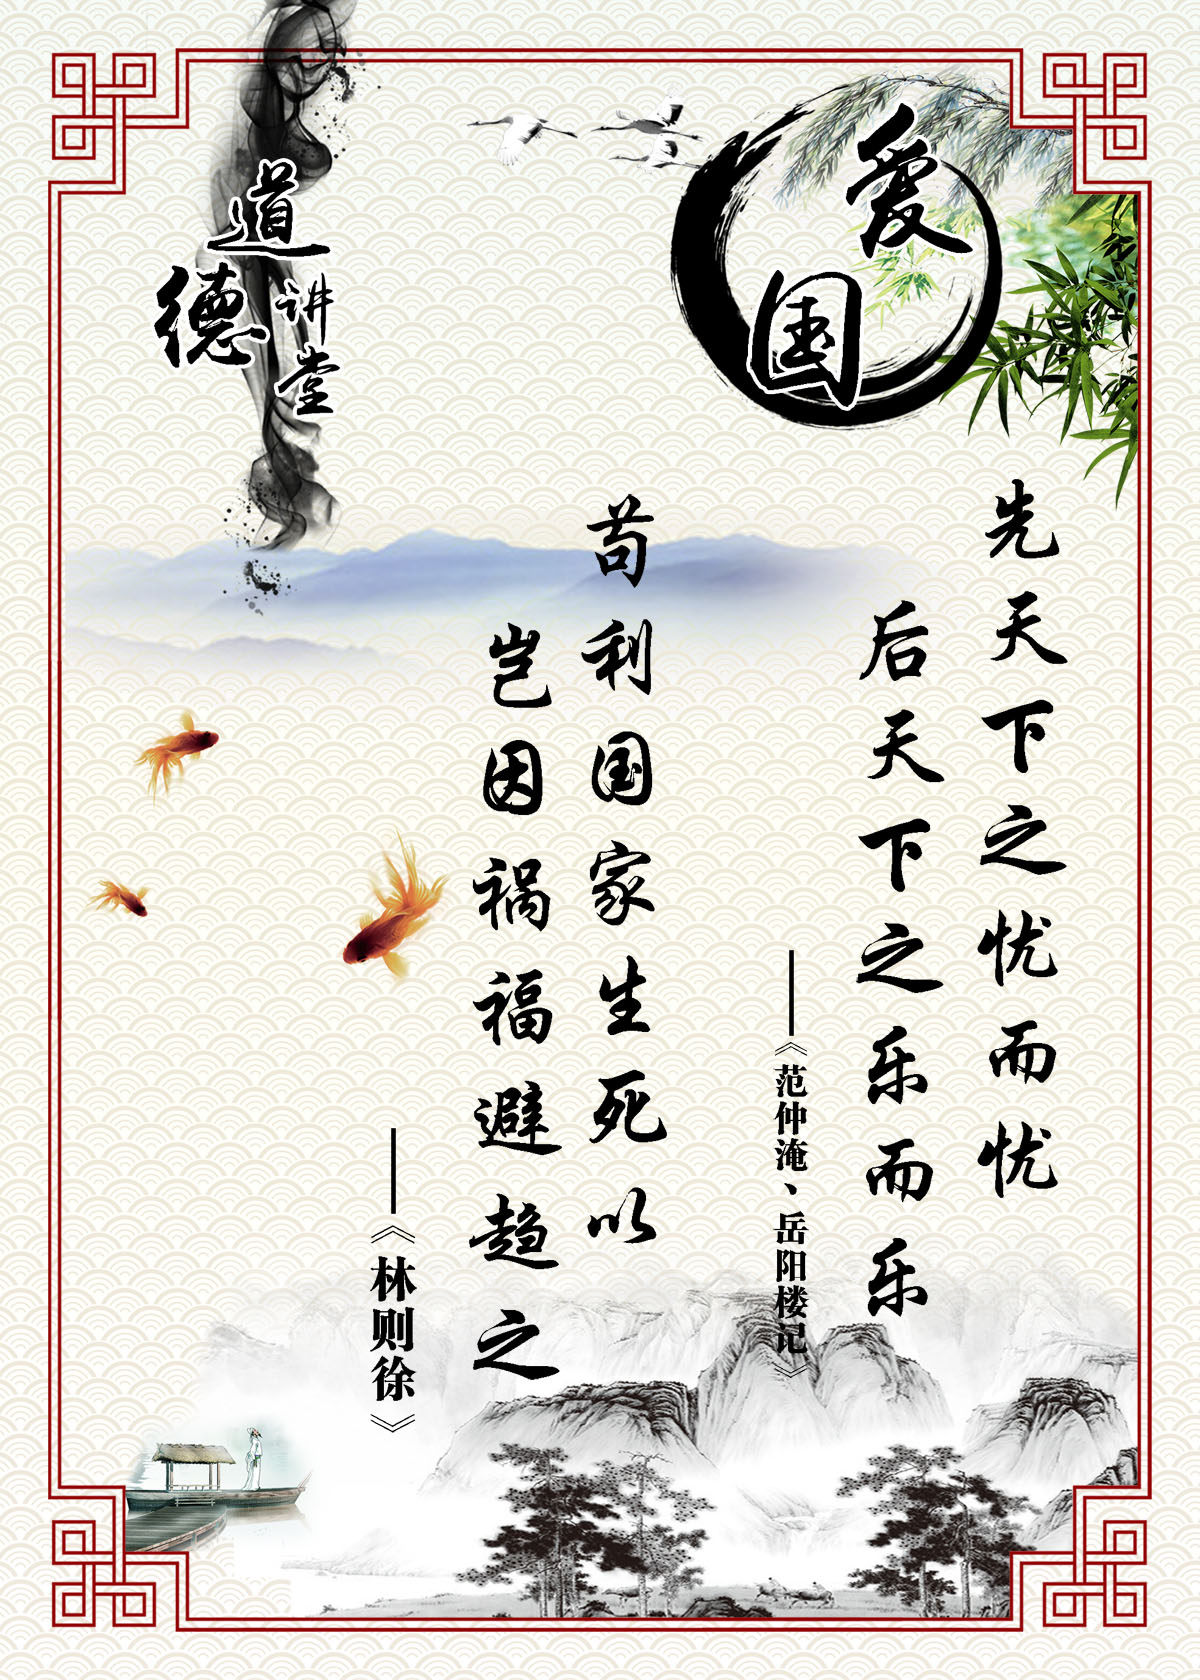 爱国
先天下之忧而忧
后天下之乐而乐
——《范仲淹、岳阳楼记》
苟利国家生死以
岂因祸福避趋之
——《林则徐》
道德
讲堂